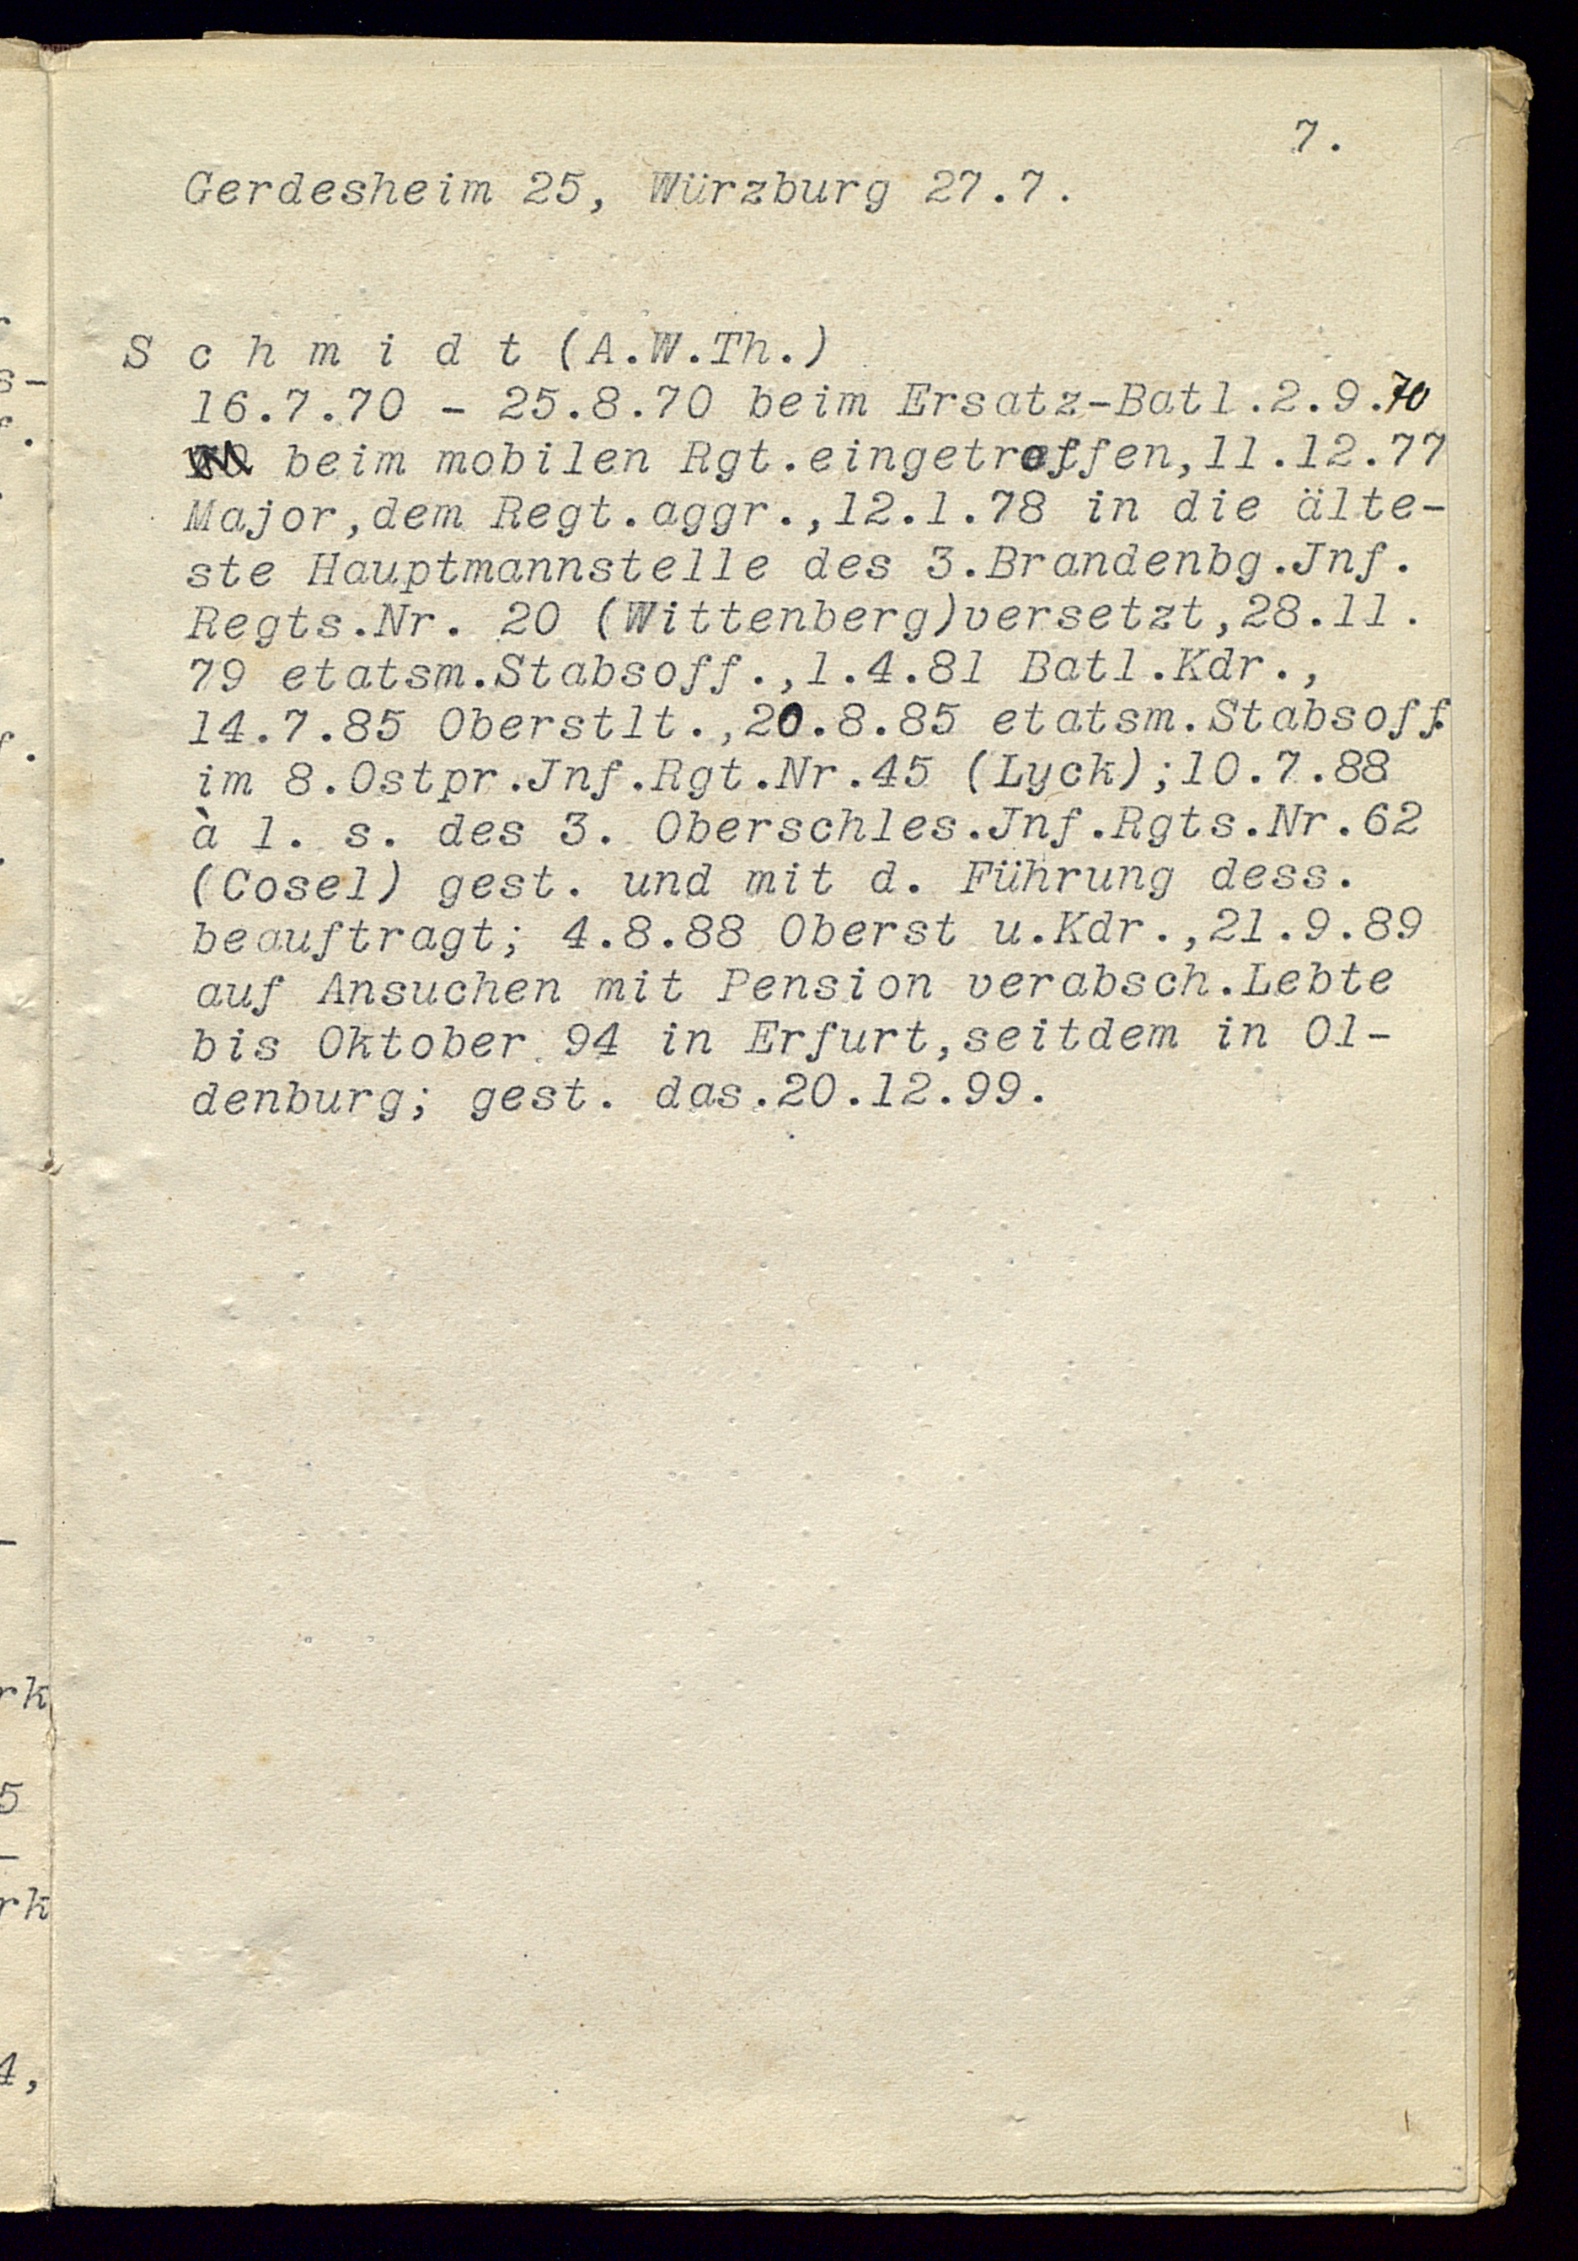 7.
Gerdesheim 25, Würzburg 27.7.
S c h m i d t (A.W.Th.)
16.7.70 - 25.8.70 beim Ersatz-Batl.2.9.70
beim mobilen Rgt.eingetroffen,11.12.77
Major,dem Regt.aggr.,12.1.78 in die älte-
ste Hauptmannstelle des 3.Brandenbg.Jnf.
Regts.Nr. 20 (Wittenberg)versetzt,28.11.
79 etatsm.Stabsoff.,1.4.81 Batl.Kdr.,
14.7.85 Oberstlt.,20.8.85 etatsm.Stabsoff.
im 8.Ostpr.Jnf.Rgt.Nr.45 (Lyck);10.7.88
à l. s. des 3. Oberschles.Jnf.Rgts.Nr.62
(Cosel) gest. und mit d. Führung dess.
beauftragt; 4.8.88 Oberst u.Kdr.,21.9.89
auf Ansuchen mit Pension verabsch.Lebte
bis Oktober 94 in Erfurt,seitdem in Ol-
denburg; gest. das.20.12.99.